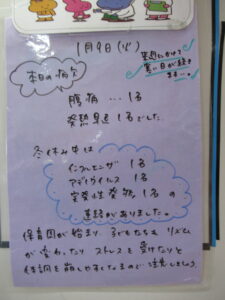 1月9日(火)
来週にかけて
寒い日が続き
ます…。
本日の病欠
腹痛 … 1名
発熱早退 1名でした。
冬休み中は
インフルエンザ 1名
アデノウイルス 1名
突発性発疹 1名 の
連絡がありました。
保育園が始まり、子どもたちも リズム
が変わったり ストレスを受けたりと
体調を崩しやすくなるので 注意しましょう